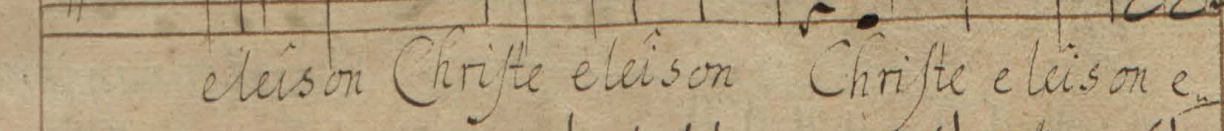 eleison Christe eleison Christe eleison e